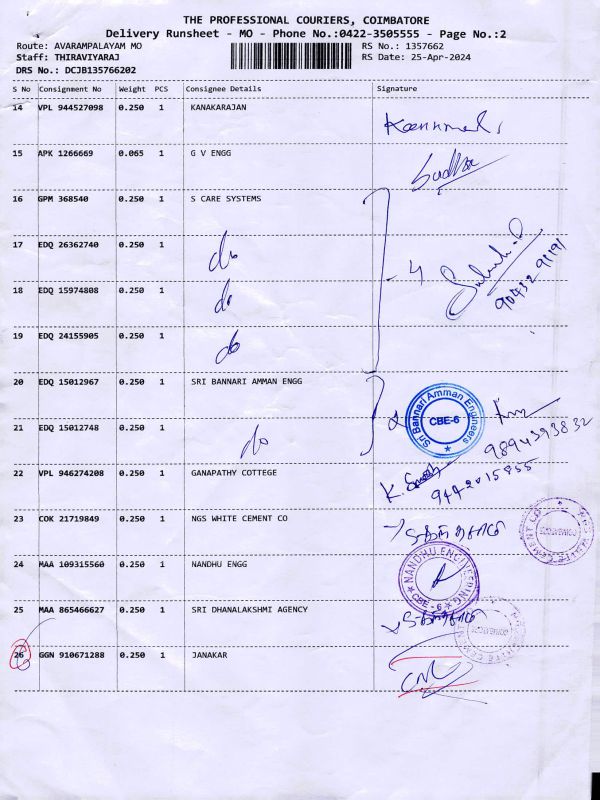 THE PROFESSIONAL COURIERS, COIMBATORE
Delivery Runsheet - MO - Phone No.:0422-3505555 - Page No.:2
Route: AVARAMPALAYAM MO RS No.: 1357662
Staff: THIRAVIYARAJ RS Date: 25-Apr-2024
DRS No.: DCJB135766202
S No Consignment No Weight PCS Consignee Details Signature
14 VPL 944527098 0.250 1 KANAKARAJAN
15 APK 1266669 0.065 1 G V ENGG
Sudha
16 GPM 368540 0.250 1 S CARE SYSTEMS
17 EDQ 26362740 0.250 1 do
4
90432 91191
18 EDQ 15974808 0.250 1 do
19 EDQ 24155905 0.250 1 do
20 EDQ 15012967 0.250 1 SRI BANNARI AMMAN ENGG
2 Sri Bannari Amman Engineers CBE-6
21 EDQ 15012748 0.250 1 do
9894393832
22 VPL 946274208 0.250 1 GANAPATHY COTTEGE
K.
9442015855
23 COK 21719849 0.250 1 NGS WHITE CEMENT CO
NGS WHITE CEMENT CO
24 MAA 109315560 0.250 1 NANDHU ENGG
NANDHU ENGINEERING CBE - 6
25 MAA 865466627 0.250 1 SRI DHANALAKSHMI AGENCY
26 GGN 910671288 0.250 1 JANAKAR